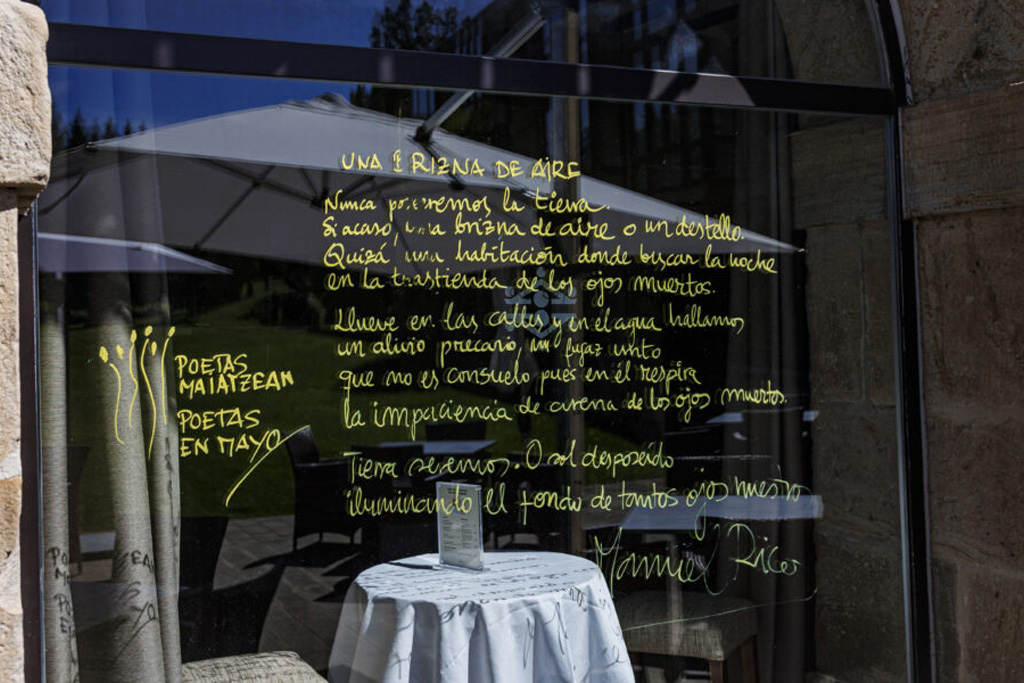 UNA BRIZNA DE AIRE
Nunca poseeremos la tierra.
Si acaso, una brizna de aire o un destello.
Quizá, una habitación donde buscar la noche
en la trastienda de los ojos muertos.
Llueve en las calles y en el agua hallamos
un alivio precario, un fugaz
que no es consuelo pues en él respira
la impaciencia de arena de los ojos muertos.
Tierra seremos. O sol desposeído
iluminando el fondo de tantos ojos nuestros
Manuel Rico
POETAS
MAIATZEAN
POETAS
EN MAYO